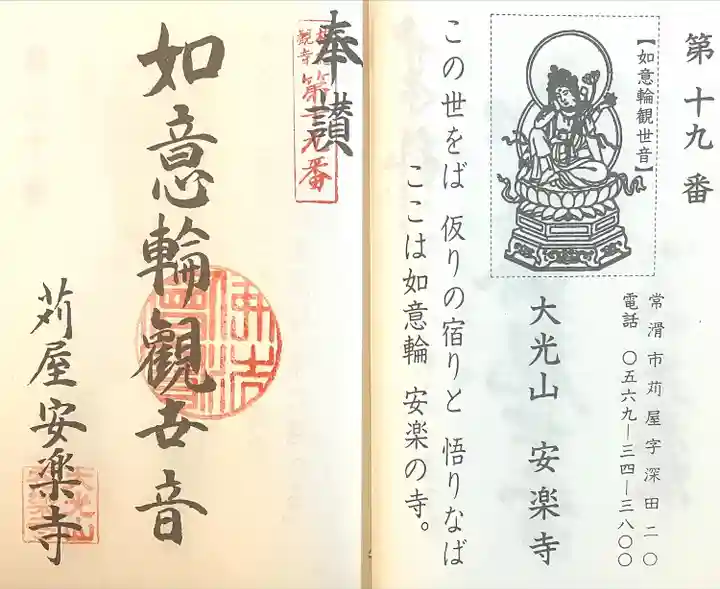 第十九番
【如意輪観世音】
常滑市苅屋字深田二〇
電話 〇五六九ー三四ー三八〇〇
大光山 安楽寺
この世をば 仮りの宿りと 悟りなば
ここは如意輪 安楽の寺。
奉讃
第十九番
如意輪觀世音
苅屋安楽寺